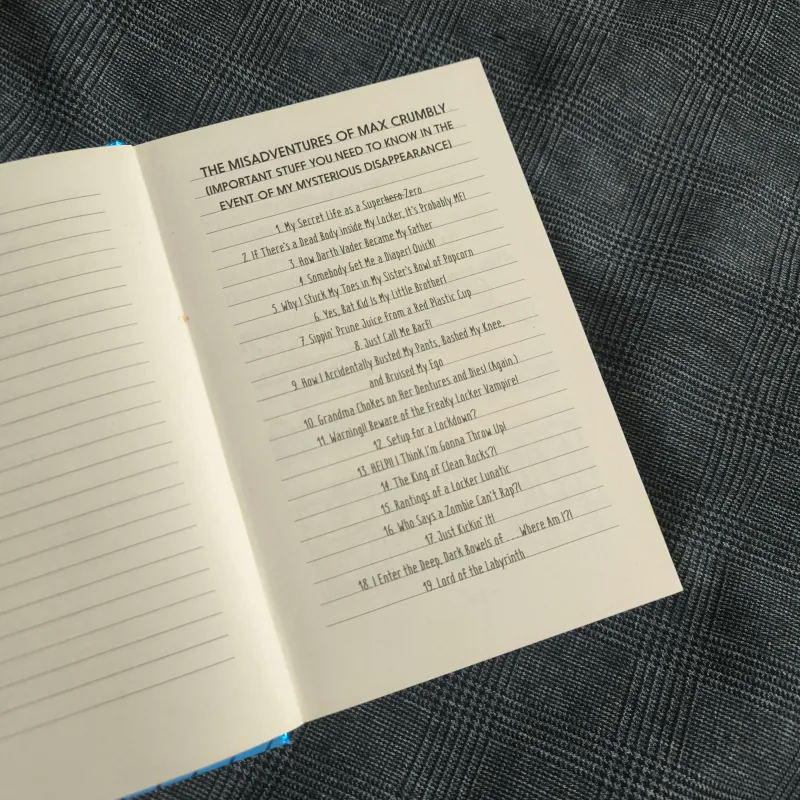 THE MISADVENTURES OF MAX CRUMBLY
(IMPORTANT STUFF YOU NEED TO KNOW IN THE
EVENT OF MY MYSTERIOUS DISAPPEARANCE)
1. My Secret Life as a Superhero Zero
2. If There's a Dead Body inside My Locker, It's Probably ME!
3. How Darth Vader Became My Father
4. Somebody Get Me a Diaper! Quick!
5. Why I Stuck My Toes in My Sister's Bowl of Popcorn
6. Yes, Bat Kid Is My Little Brother!
7. Sippin' Prune Juice From a Red Plastic Cup
8. Just Call Me Barf!
9. How I Accidentally Busted My Pants, Bashed My Knee,
and Bruised My Ego
10. Grandma Chokes on Her Dentures and Dies! (Again.)
11. Warning!! Beware of the Freaky Locker Vampire!
12. Setup for a Lockdown?
13. HELP!! I Think I'm Gonna Throw Up!
14. The King of Clean Rocks?!
15. Rantings of a Locker Lunatic
16. Who Says a Zombie Can't Rap?!
17. Just Kickin' It!
18. I Enter the Deep, Dark Bowels of . . . Where Am I?!
19. Lord of the Labyrinth